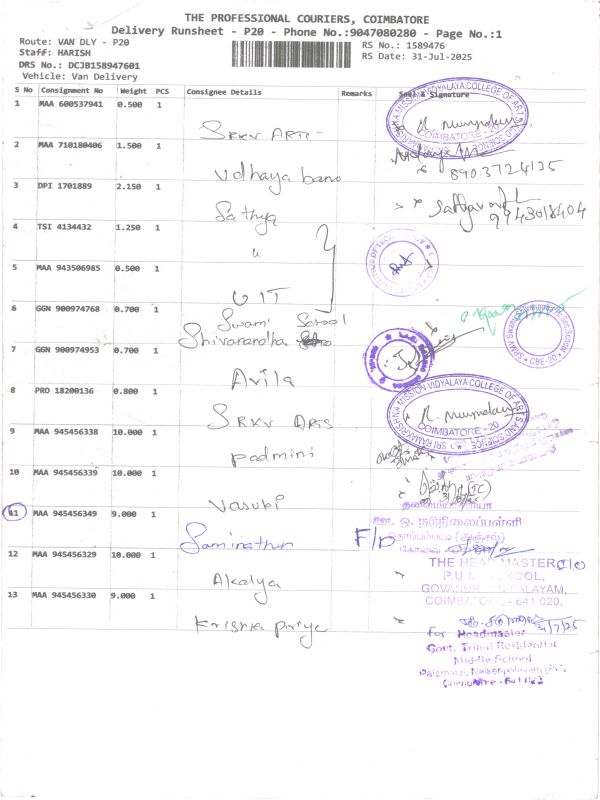 THE PROFESSIONAL COURIERS, COIMBATORE
Delivery Runsheet - P20 - Phone No.:9047080280 - Page No.:1
Route: VAN DLY - P20
Staff: HARISH
DRS No.: DCJB158947601
Vehicle: Van Delivery
RS No.: 1589476
RS Date: 31-Jul-2025
S No Consignment No Weight PCS Consignee Details Remarks Seal & Signature
1 MAA 600537941 0.500 1
SRKV ARTS
COIMBATORE - 20
2 MAA 710180406 1.500 1
Udhaya bano
8903724135
3 DPI 1701889 2.150 1
Sathya
9943018404
4 TSI 4134432 1.250 1
"
5 MAA 943506985 0.500 1
GIT
6 GGN 900974768 0.700 1
Swami School
Shivanandha
CBE-20
7 GGN 900974953 0.700 1
Avila
8 PRO 18200136 0.800 1
SRKV ARTS
SRI RAMAKRISHNA MISSION VIDYALAYA COLLEGE OF ARTS AND SCIENCE
COIMBATORE - 20
9 MAA 945456338 10.000 1
Padmini
10 MAA 945456339 10.000 1
Vasuki
11 MAA 945456349 9.000 1
Saminathan F/D
12 MAA 945456329 10.000 1
Akalya
THE HEADMASTER
SCHOOL,
COIMBATORE - 641 020.
13 MAA 945456330 9.000 1
Krishna Priya
31/7/25
for Headmaster
Govt. Tribal Residential
Middle School